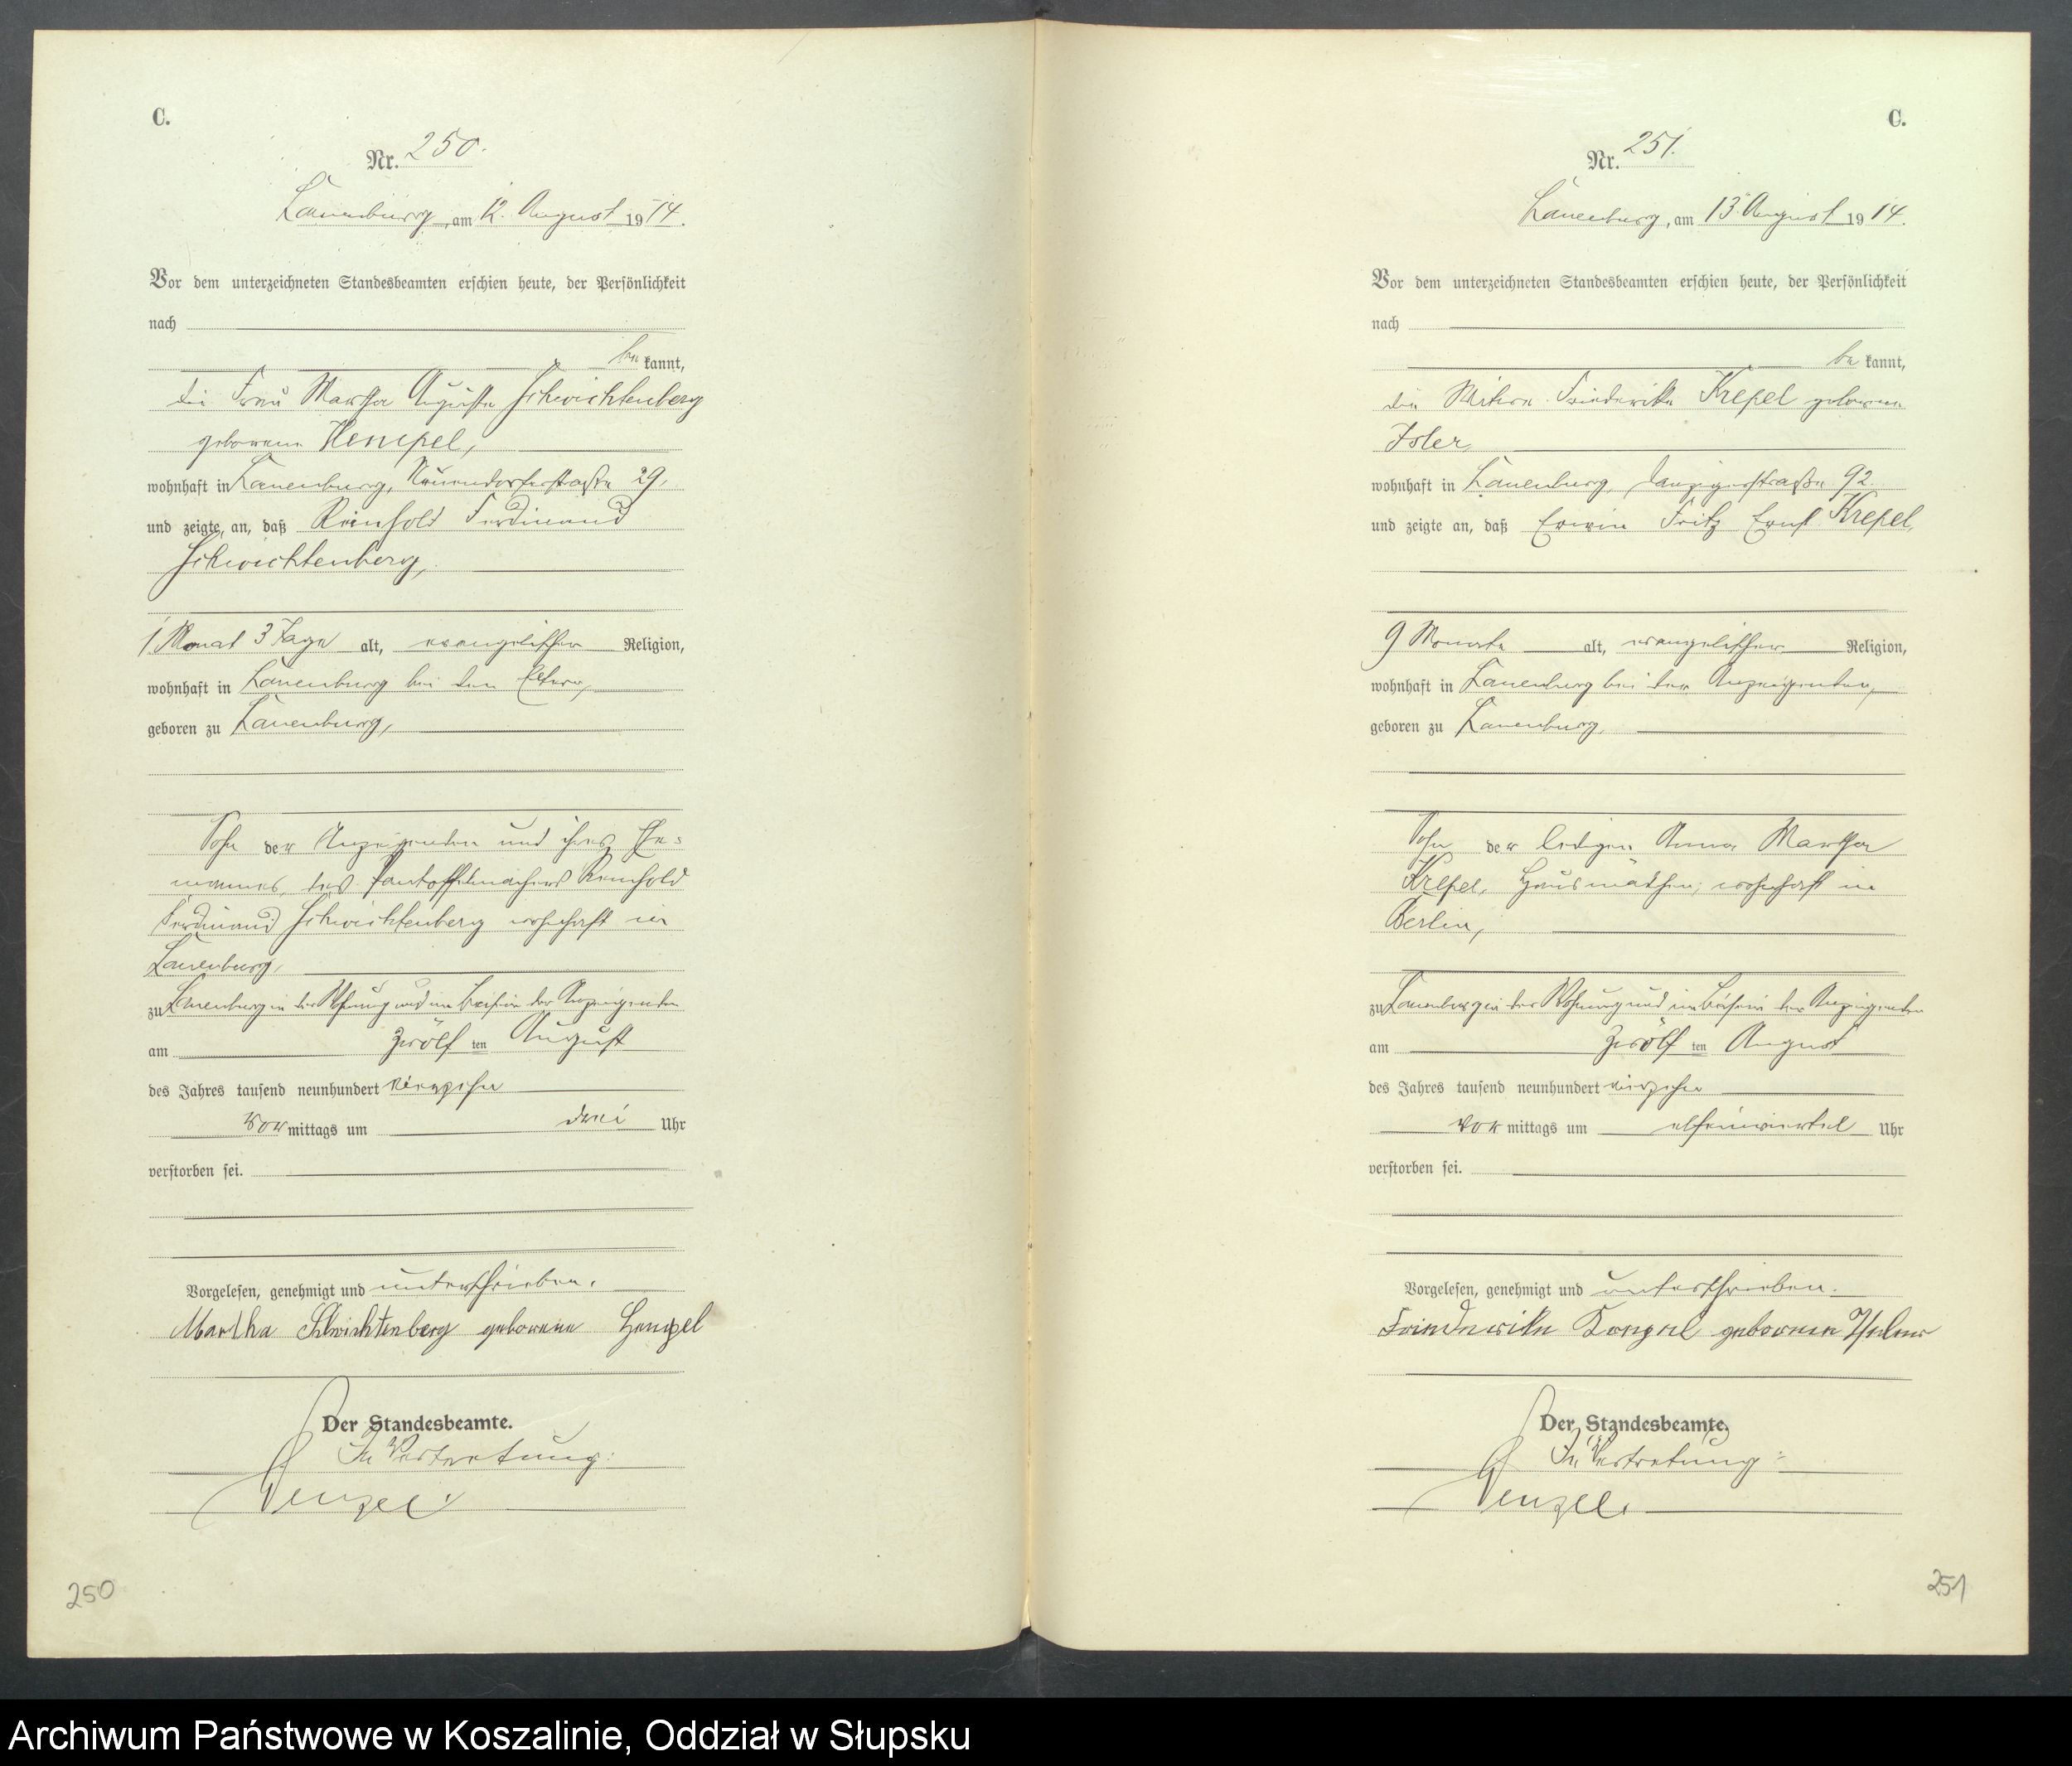 C.
Nr. 250.
Lauenburg, am 12. August 1914.
Vor dem unterzeichneten Standesbeamten erschien heute, der Persönlichkeit
nach
be kannt,
die Frau Martha Auguste Schwichtenberg
geborene Hempel,
wohnhaft in Lauenburg, Neuendorferstraße 29,
und zeigte an, daß Reinhold Ferdinand
Schwichtenberg,
1 Monat 3 Tage alt, evangelischer Religion,
wohnhaft in Lauenburg bei den Eltern,
geboren zu Lauenburg,
Sohn der Anzeigenden und ihres Ehe=
mannes, des Pantoffelmachers Reinhold
Ferdinand Schwichtenberg wohnhaft in
Lauenburg,
zu Lauenburg in der Wohnung und im Beisein der Anzeigenden
am zwölf ten August
des Jahres tausend neunhundert vierzehn
vor mittags um drei Uhr
verstorben sei.
Vorgelesen, genehmigt und unterschrieben.
Martha Schwichtenberg geborene Hempel
Der Standesbeamte.
In Vertretung:
Wenzel.
250
C.
Nr. 251.
Lauenburg, am 13. August 1914.
Vor dem unterzeichneten Standesbeamten erschien heute, der Persönlichkeit
nach
be kannt,
die Witwe Friederike Krepel geborene
wohnhaft in Lauenburg, Danzigerstraße 92
und zeigte an, daß Erwin Fritz Ernst Krepel,
9 Monate alt, evangelischer Religion,
wohnhaft in Lauenburg bei der Anzeigenden,
geboren zu Lauenburg,
Sohn der ledigen Anna Martha
Krepel, Hausmädchen, wohnhaft in
Berlin,
zu Lauenburg in der Wohnung und im Beisein der Anzeigenden
am zwölf ten August
des Jahres tausend neunhundert vierzehn
vor mittags um elfeinviertel Uhr
verstorben sei.
Vorgelesen, genehmigt und unterschrieben.
Friederike geborene
Der Standesbeamte.
In Vertretung:
Wenzel.
251
Archiwum Państwowe w Koszalinie, Oddział w Słupsku